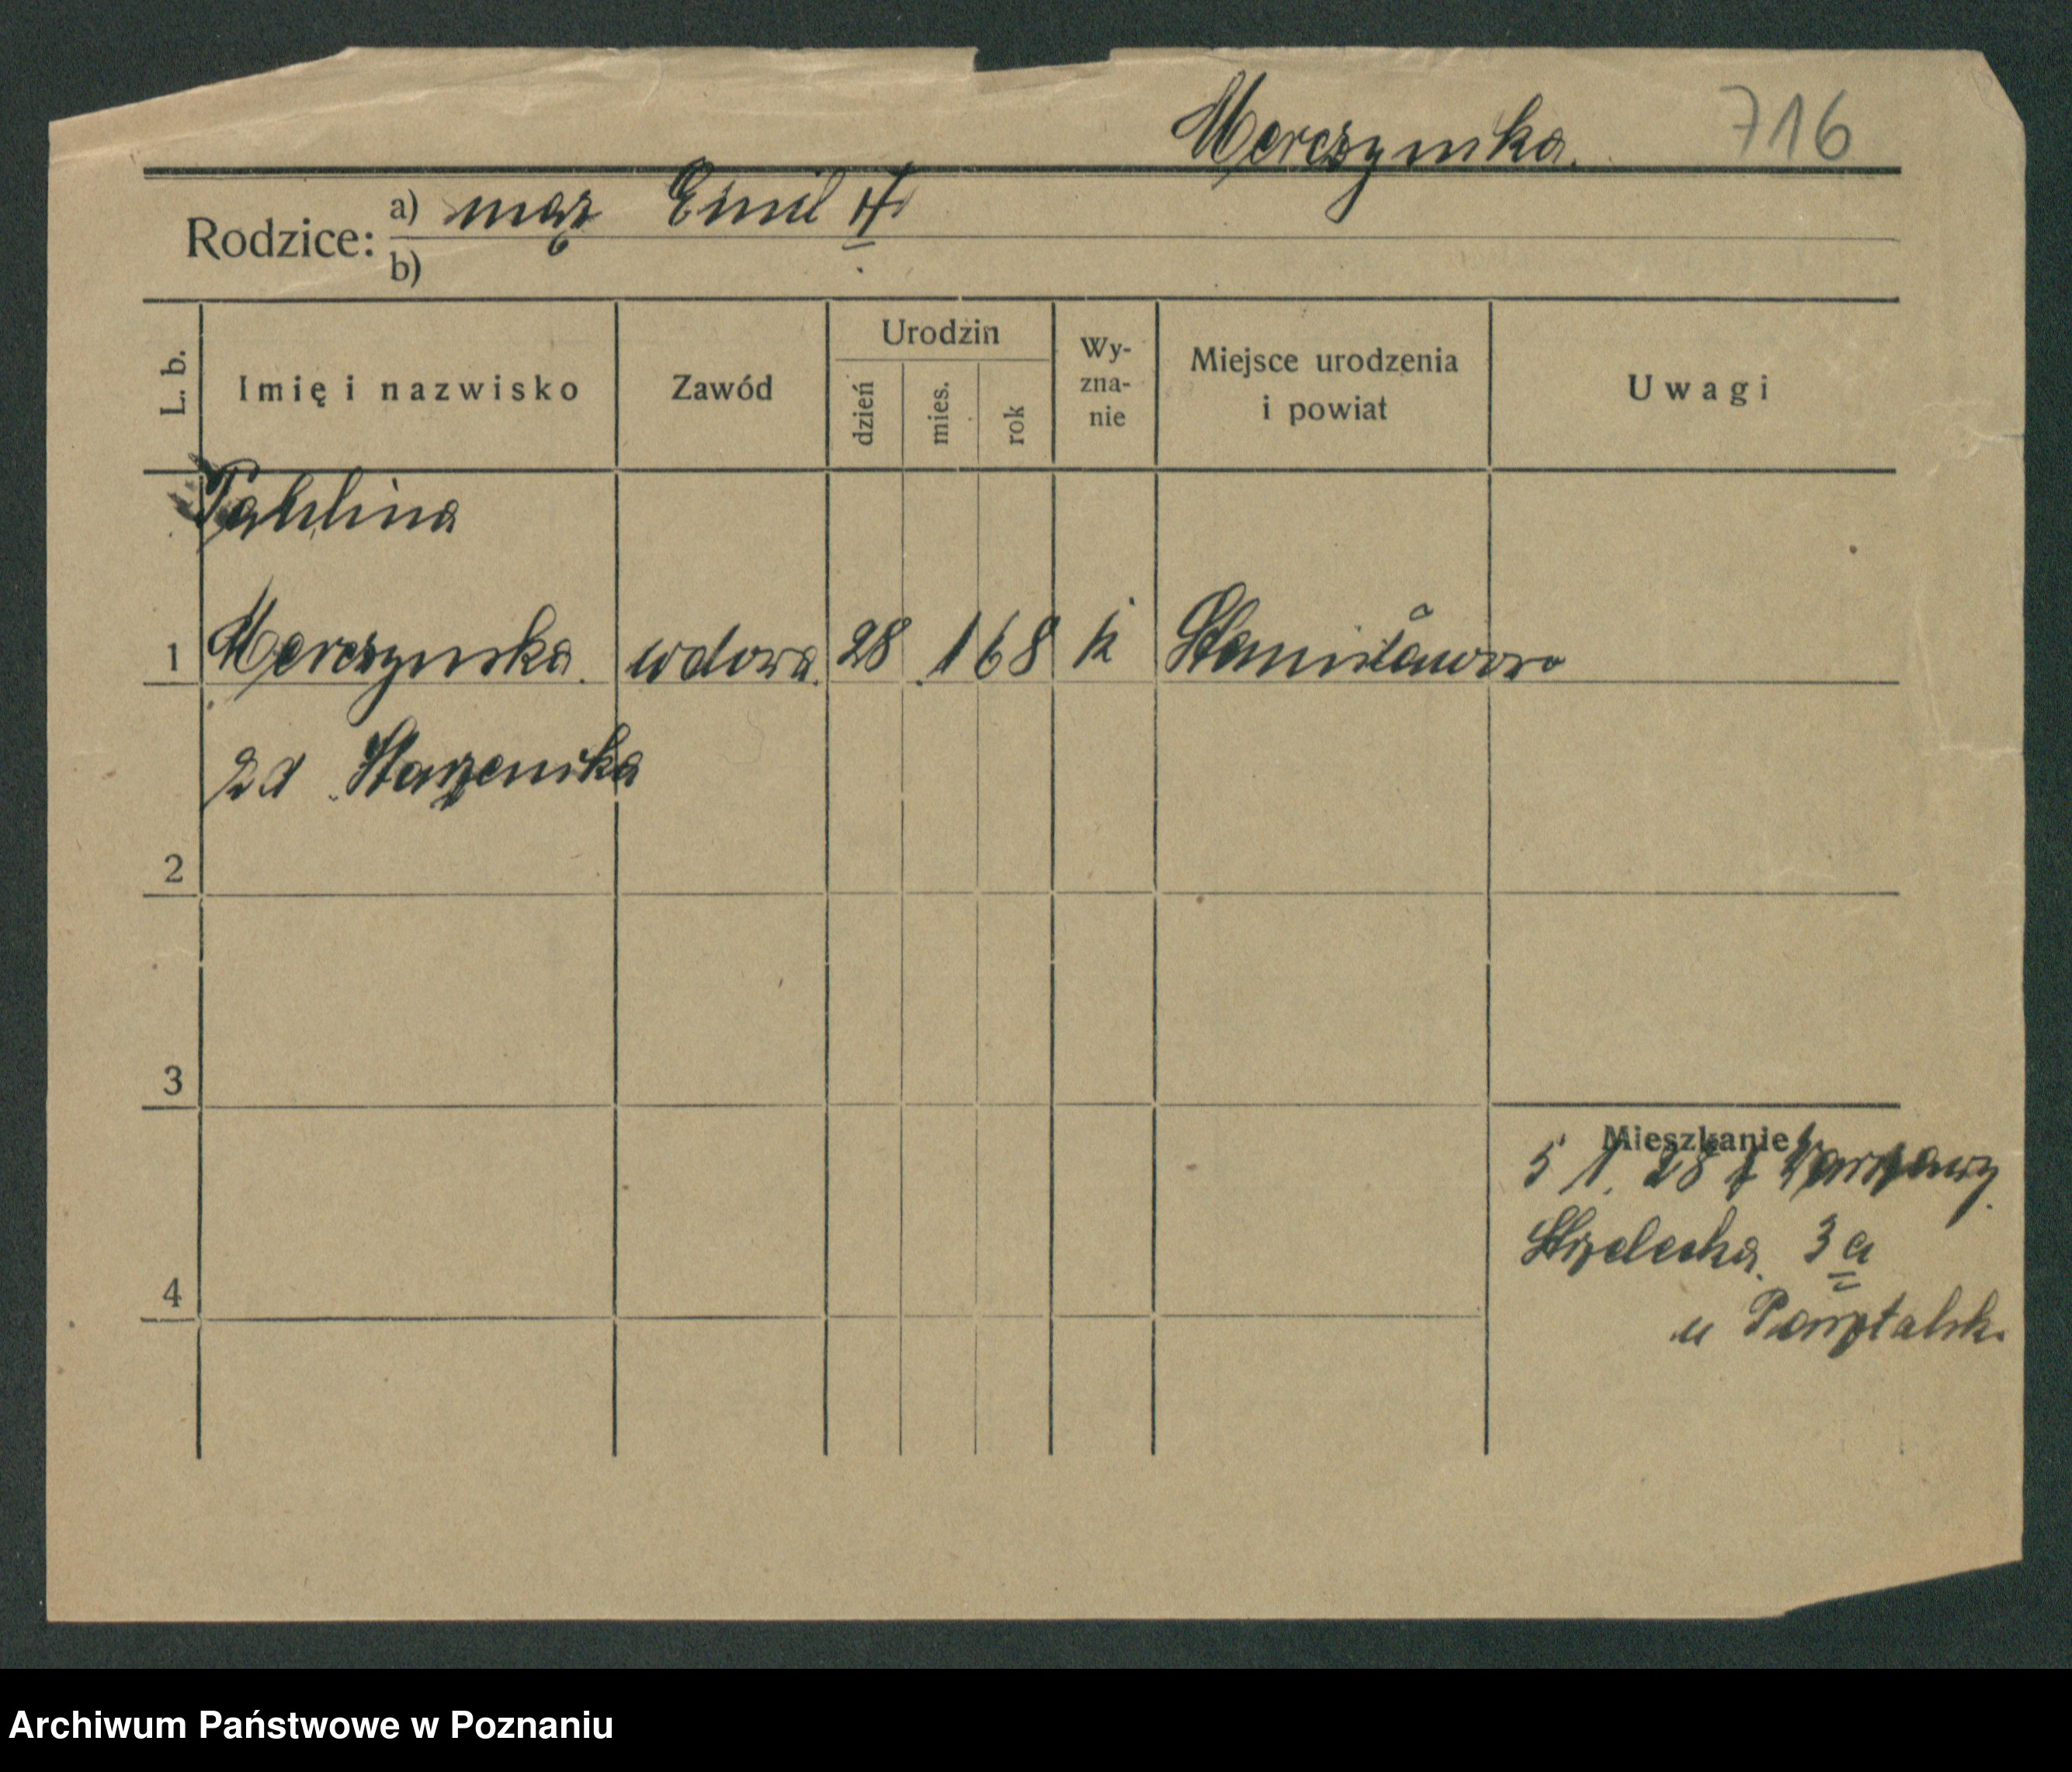 Merczynska. 716
Rodzice: a) mąż Emil †
b)
L. b. Imię i nazwisko Zawód Urodzin dzień mies. rok Wy- zna- nie Miejsce urodzenia i powiat Uwagi
Paulina
1 Merczynska. wdowa. 28 .1 68 k Stanisławowo
zd Starzenska
2
3
Mieszkanie
5 1. 28 z Warszawy.
Strzelecka. 3a
4
u
Archiwum Państwowe w Poznaniu